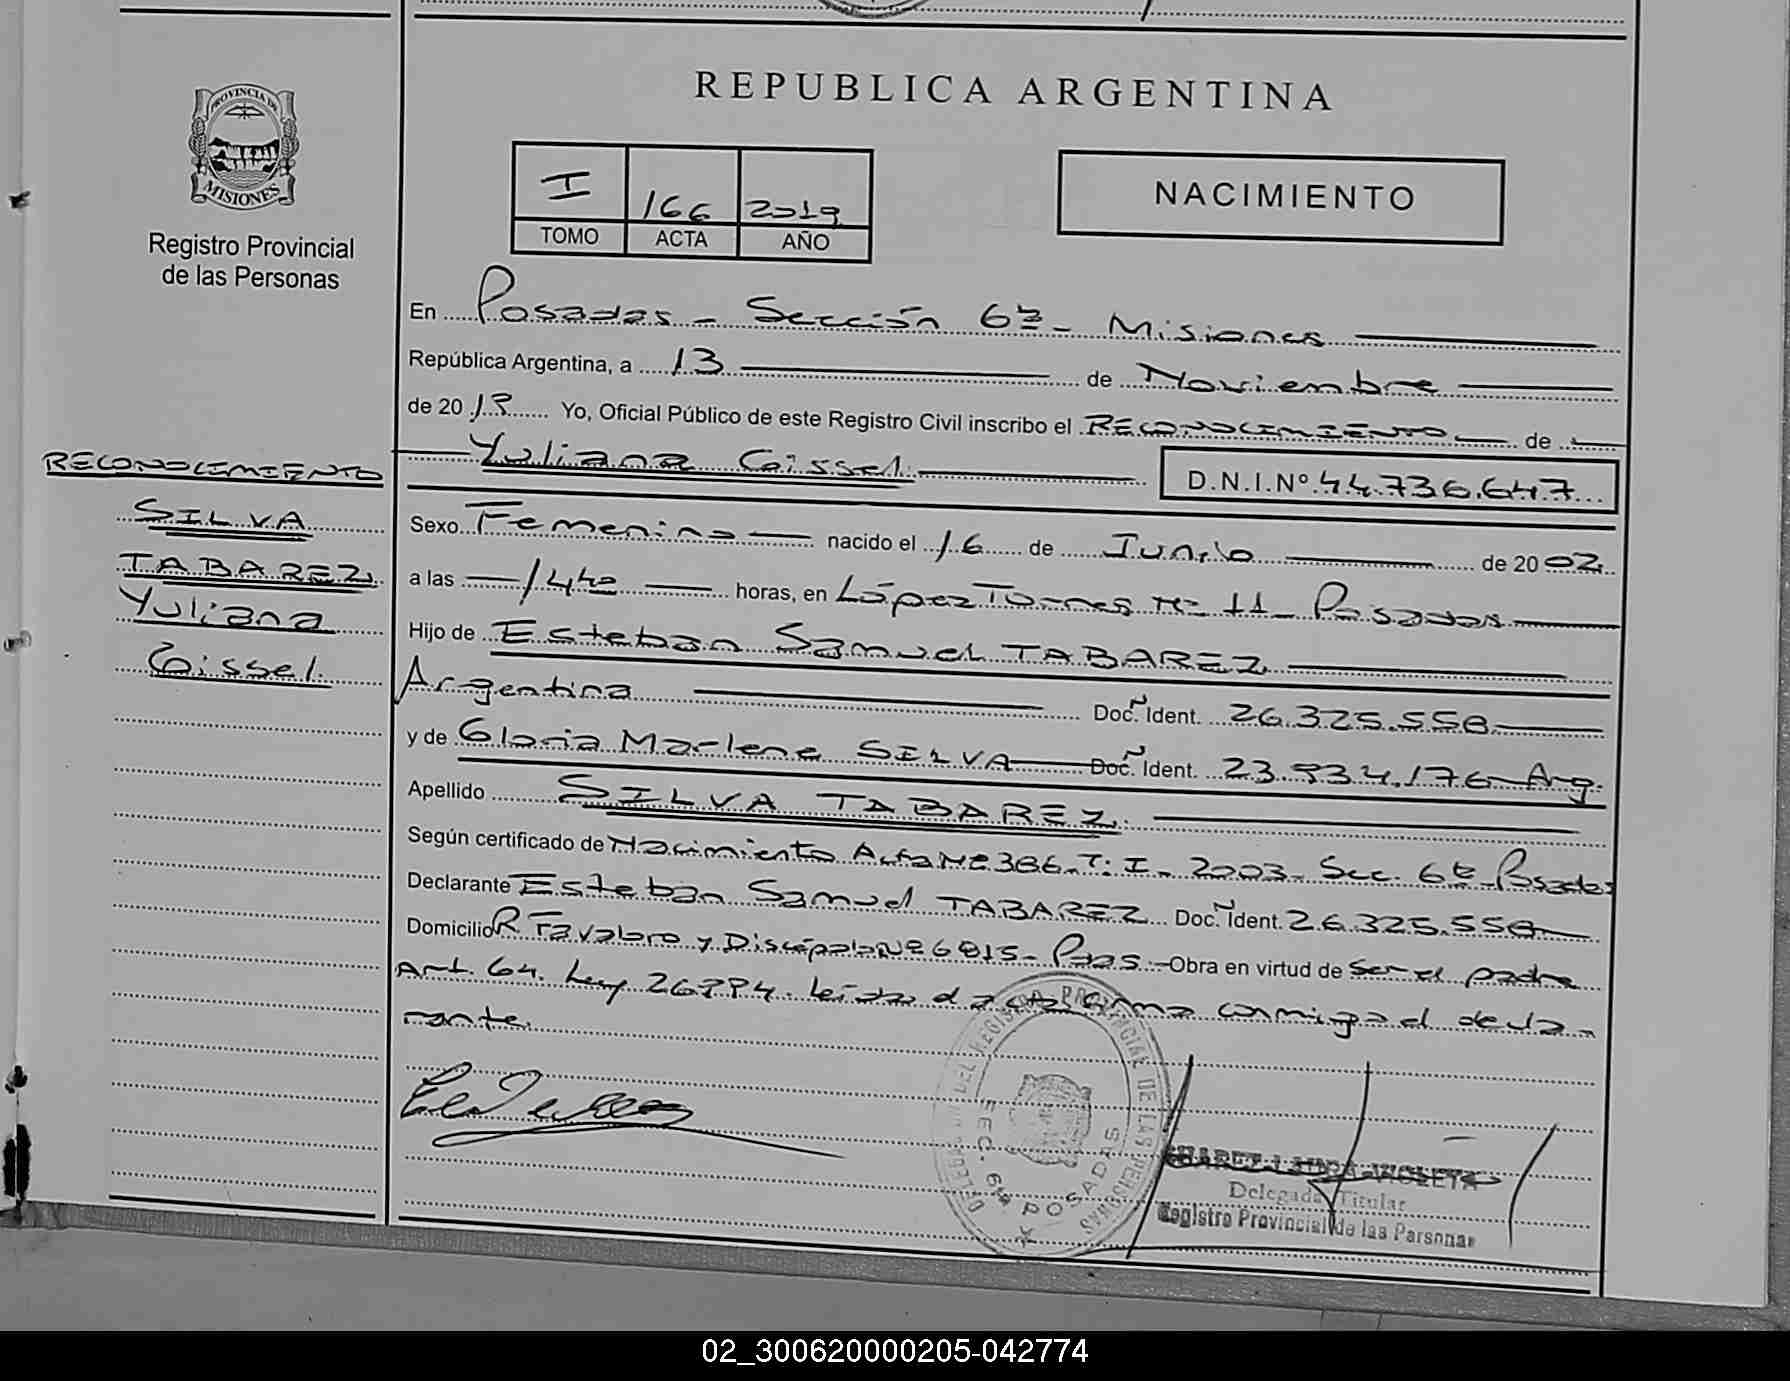 PROVINCIA DE
MISIONES
Registro Provincial
de las Personas
REPUBLICA ARGENTINA
I 166 2019
TOMO ACTA AÑO
NACIMIENTO
En Posadas - Sección 6ª - Misiones
República Argentina, a 13 de Noviembre
de 2019 Yo, Oficial Público de este Registro Civil inscribo el RECONOCIMIENTO de
Yuliana Geissel D.N.I.Nº 44.736.647
RECONOCIMIENTO
SILVA
TABAREZ
Yuliana
Geissel
Sexo Femenino nacido el 16 de Junio de 2002
a las 14hs horas, en López Torres Nº 11 - Posadas
Hijo de Esteban Samuel TABAREZ
Argentina Doc. Ident. 26.325.558
y de Gloria Marlene SILVA Doc. Ident. 23.934.176 Arg.
Apellido SILVA TABAREZ
Según certificado de Nacimiento Acta Nº 386 - T: I - 2003 - Sec. 6ª - Posadas
Declarante Esteban Samuel TABAREZ Doc. Ident. 26.325.558
Domicilio R Favaloro y Discépolo Nº 6815 - Pdas. Obra en virtud de ser el padre
Art. 64. Ley 26994. Leída el acta firma conmigo el decla-
rante.
DELEGACION DEL REGISTRO PROVINCIAL DE LAS PERSONAS
SEC. 6ta POSADAS
SUAREZ LAURA VIOLETA
Delegada Titular
Registro Provincial de las Personas
02_300620000205-042774